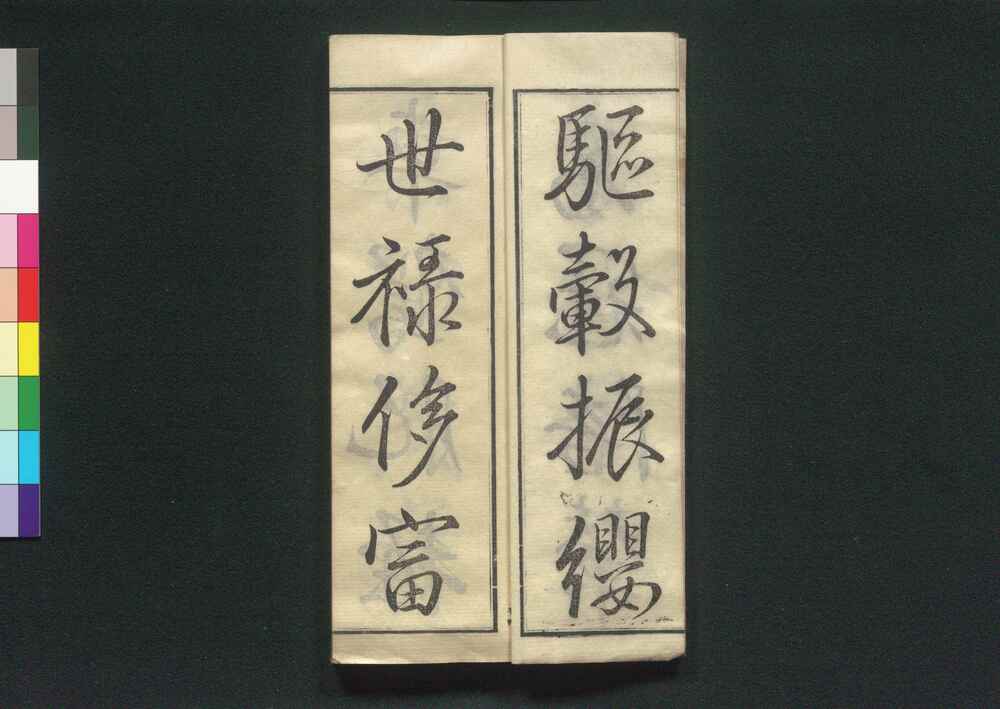 驅轂振纓
世禄侈富